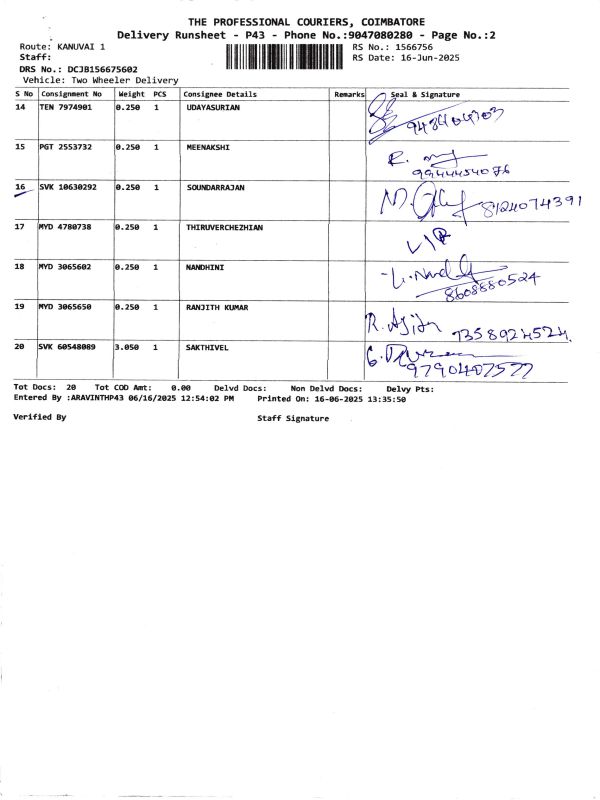 THE PROFESSIONAL COURIERS, COIMBATORE
Delivery Runsheet - P43 - Phone No.:9047080280 - Page No.:2
Route: KANUVAI 1 RS No.: 1566756
Staff: RS Date: 16-Jun-2025
DRS No.: DCJB156675602
Vehicle: Two Wheeler Delivery
S No Consignment No Weight PCS Consignee Details Remarks Seal & Signature
14 TEN 7974901 0.250 1 UDAYASURIAN
15 PGT 2553732 0.250 1 MEENAKSHI
9944454076
16 SVK 10630292 0.250 1 SOUNDARRAJAN 8124074391
17 MYD 4780738 0.250 1 THIRUVERCHEZHIAN
18 MYD 3065602 0.250 1 NANDHINI
8608880524
19 MYD 3065650 0.250 1 RANJITH KUMAR
R. Ajith 7358924524
20 SVK 60548089 3.050 1 SAKTHIVEL
9790407577
Tot Docs: 20 Tot COD Amt: 0.00 Delvd Docs: Non Delvd Docs: Delvy Pts:
Entered By :ARAVINTHP43 06/16/2025 12:54:02 PM Printed On: 16-06-2025 13:35:50
Verified By Staff Signature